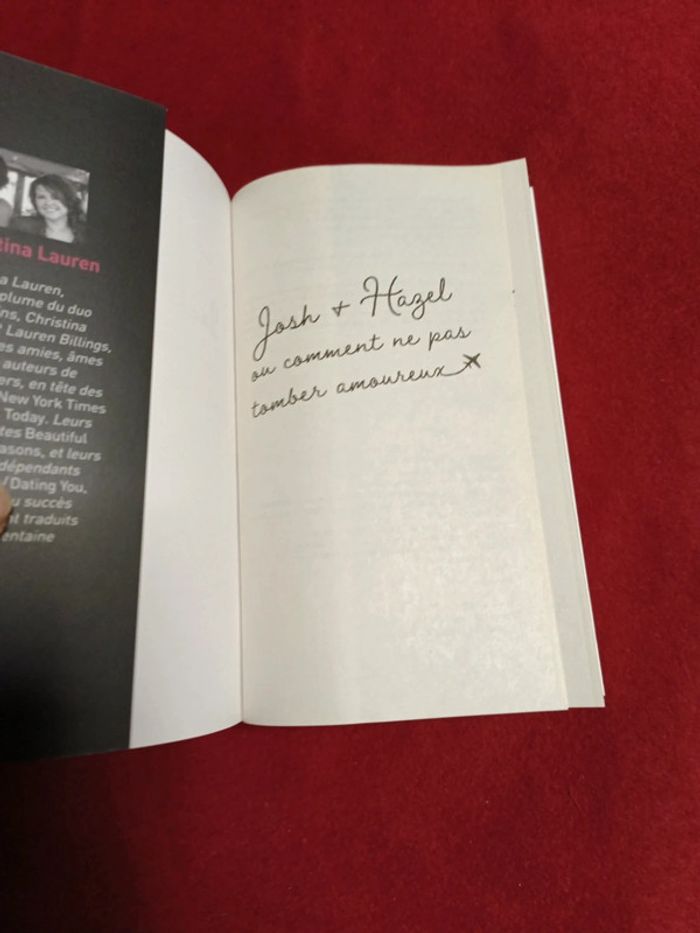 tina Lauren
a Lauren,
plume du duo
ns, Christina
Lauren Billings,
es amies, âmes
auteurs de
ors, en tête des
New York Times
Today. Leurs
tes Beautiful
asons, et leurs
dépendants
/ Dating You,
u succès
nt traduits
entaine
Josh + Hazel
ou comment ne pas
tomber amoureux